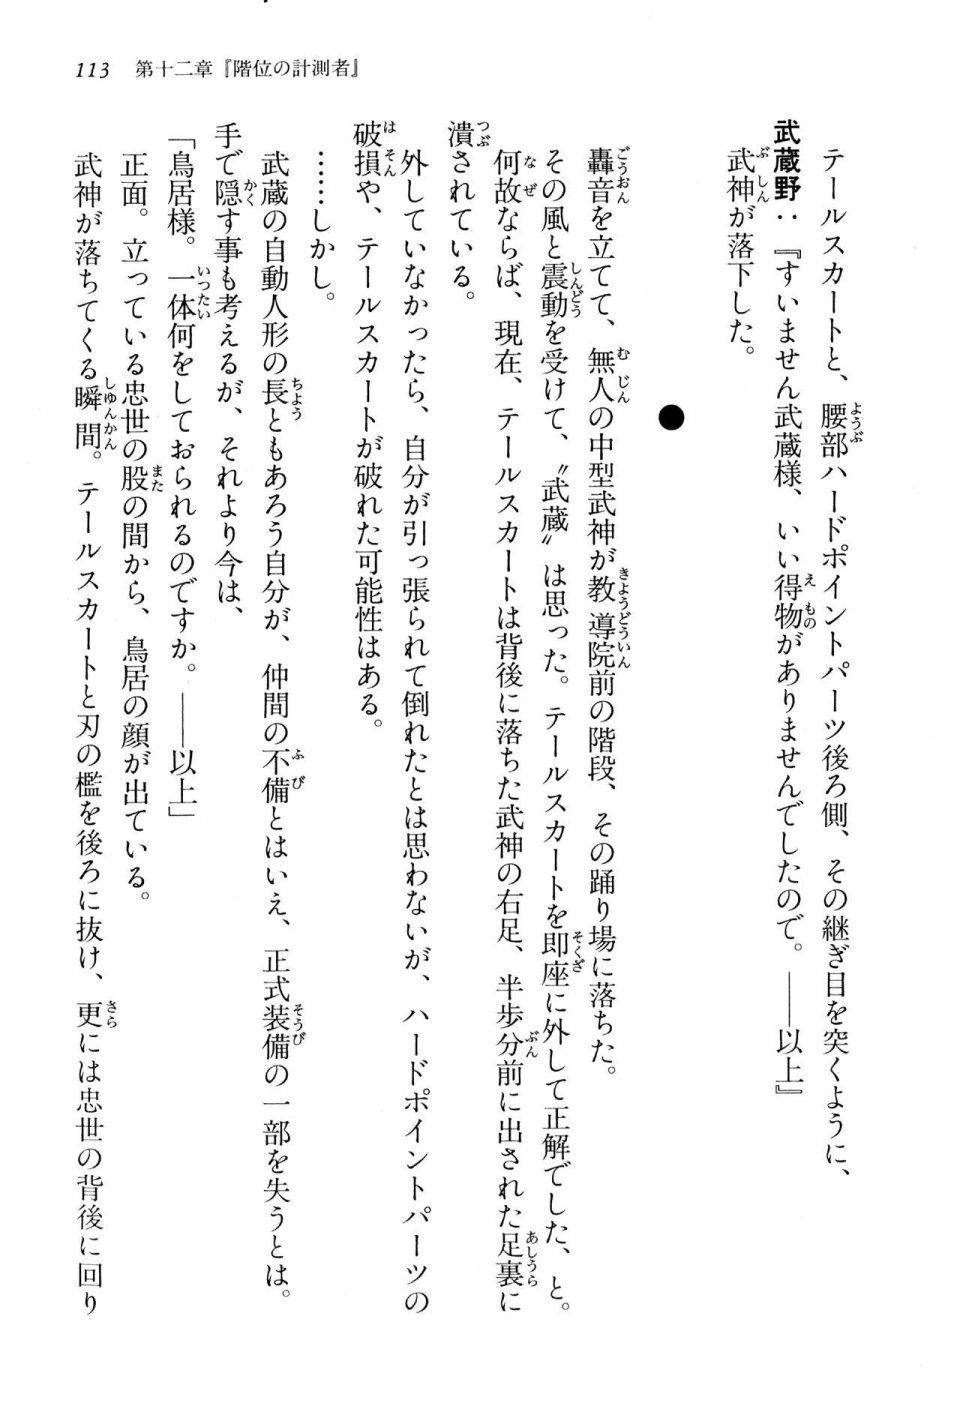 113 第十二章『階位の計測者』
テールスカートと、腰部ハードポイントパーツ後ろ側、その継ぎ目を突くように、
武蔵野：『すいません武蔵様、いい得物がありませんでしたので。――以上』
武神が落下した。
●
轟音を立てて、無人の中型武神が教導院前の階段、その踊り場に落ちた。
その風と震動を受けて、〝武蔵〟は思った。テールスカートを即座に外して正解でした、と。
何故ならば、現在、テールスカートは背後に落ちた武神の右足、半歩分前に出された足裏に
潰されている。
外していなかったら、自分が引っ張られて倒れたとは思わないが、ハードポイントパーツの
破損や、テールスカートが破れた可能性はある。
……しかし。
武蔵の自動人形の長ともあろう自分が、仲間の不備とはいえ、正式装備の一部を失うとは。
手で隠す事も考えるが、それより今は、
「鳥居様。一体何をしておられるのですか。――以上」
正面。立っている忠世の股の間から、鳥居の顔が出ている。
武神が落ちてくる瞬間。テールスカートと刃の檻を後ろに抜け、更には忠世の背後に回り